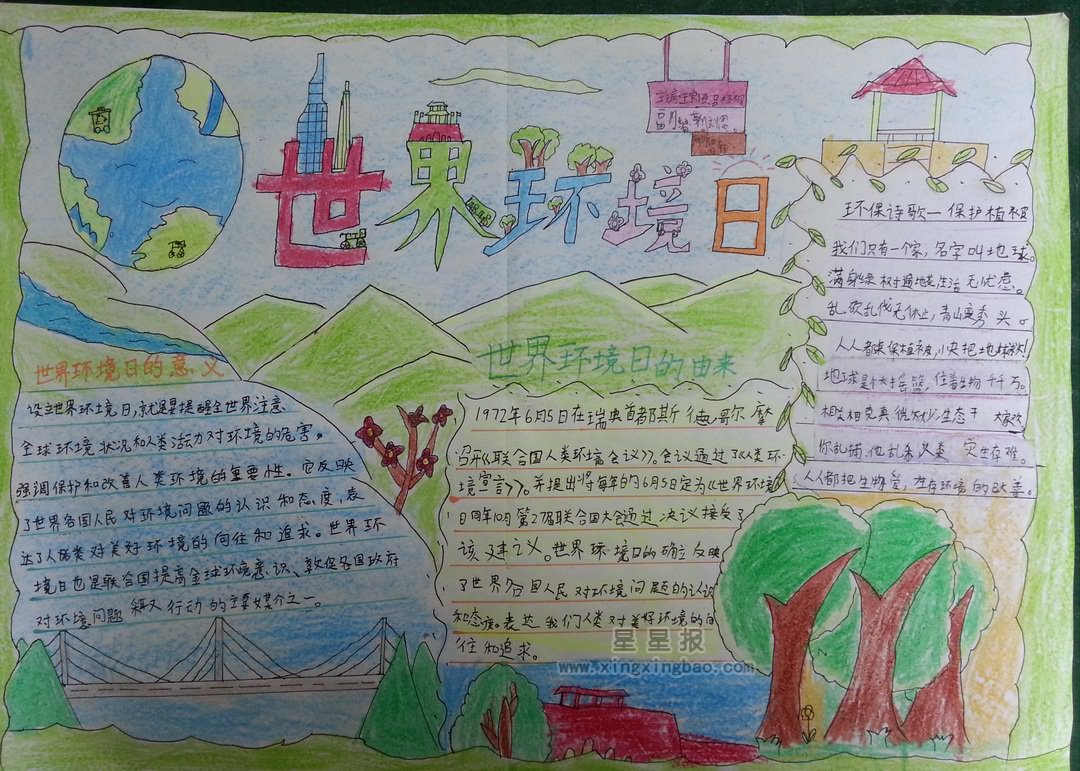 世界环境日
环保诗歌—保护植被
我们只有一个家，名字叫地球。
满身绿树遍地花生活无忧愁。
乱砍乱伐无休止，青山变秃头。
人人都来保植被，小央把地球救！
地球是个大摇篮，住着生物千千万。
相克真优，生态平 大家欢
你乱捕，他乱杀 灾生存难。
人人都把生物爱，生存环境的
世界环境日的意义
设立世界环境日，就是要提醒全世界注意
全球环境状况和人类活动对环境的危害。
强调保护和改善人类环境的重要性。它反映
了世界各国人民对环境问题的认识和态度，表
达了人类对美好环境的向往和追求。世界环
境日也是联合国提高全球环境意识、敦促各国政府
对环境问题 行动的主要媒介之一。
世界环境日的由来
1972年6月5日在瑞典首都斯德歌摩
召开《联合国人类环境会议》。会议通过了《人类环
境宣言》。并提出将每年的6月5定为《世界环境
日同年10月第27届联合国大会通过决议接受了
该建义。世界环境日的确立反映
了世界各国人民对环境问题的认识
和态度。表达我们人类对美好环境的向
往和追求。
星星报
www.xingxingbao.com